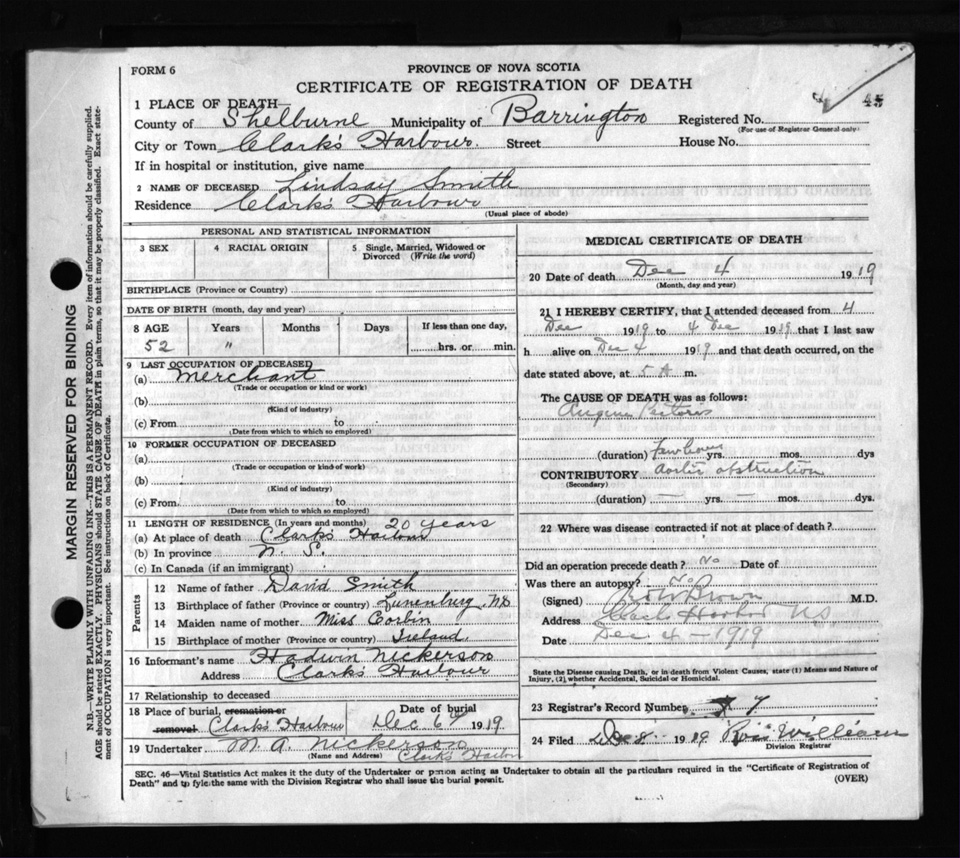 FORM 6
PROVINCE OF NOVA SCOTIA
CERTIFICATE OF REGISTRATION OF DEATH
45
1 PLACE OF DEATH—
County of Shelburne Municipality of Barrington Registered No.
(For use of Registrar General only)
City or Town Clark's Harbour. Street House No.
If in hospital or institution, give name
2 NAME OF DECEASED Lindsay Smith
Residence Clark's Harbour
(Usual place of abode)
MARGIN RESERVED FOR BINDING
N.B.—WRITE PLAINLY WITH UNFADING INK—THIS IS A PERMANENT RECORD. Every item of information should be carefully supplied.
AGE should be stated EXACTLY. PHYSICIANS should STATE CAUSE OF DEATH in plain terms, so that it may be properly classified. Exact state-
ment of OCCUPATION is very important. See instructions on back of Certificate.
PERSONAL AND STATISTICAL INFORMATION
3 SEX
4 RACIAL ORIGIN
5 Single, Married, Widowed or
Divorced (Write the word)
BIRTHPLACE (Province or Country)
DATE OF BIRTH (month, day and year)
8 AGE Years Months Days If less than one day,
52 " hrs. or min.
9 LAST OCCUPATION OF DECEASED
(a) Merchant
(Trade or occupation or kind or work)
(b)
(Kind of industry)
(c) From to
(Date from which to which so employed)
10 FORMER OCCUPATION OF DECEASED
(a)
(Trade or occupation or kind of work)
(b)
(Kind of industry)
(c) From to
(Date from which to which so employed)
11 LENGTH OF RESIDENCE (In years and months) 20 years
(a) At place of death Clark's Harbour
(b) In province N. S.
(c) In Canada (if an immigrant)
Parents
12 Name of father David Smith
13 Birthplace of father (Province or country) Lunenburg, NS
14 Maiden name of mother Miss Corbin
15 Birthplace of mother (Province or country) Ireland.
16 Informant's name Hadwin Nickerson
Address Clark's Harbour
17 Relationship to deceased
18 Place of burial, cremation or Date of burial
removal Clark's Harbour Dec 6th 1919.
19 Undertaker M. A. Nickerson
(Name and Address) Clark's Harbor
MEDICAL CERTIFICATE OF DEATH
20 Date of death Dec 4 1919
(Month, day and year)
21 I HEREBY CERTIFY, that I attended deceased from 4
Dec 1919 to 4 Dec 1919 that I last saw
h alive on Dec 4 1919 and that death occurred, on the
date stated above, at 5 A m.
The CAUSE OF DEATH was as follows:
Angina Pectoris
(duration) few hours yrs. mos. dys
CONTRIBUTORY aortic obstruction
(Secondary)
(duration) — yrs. — mos. dys.
22 Where was disease contracted if not at place of death?
Did an operation precede death? No Date of
Was there an autopsy? No
(Signed) Brown M.D.
Address N.S.
Date Dec 4 — 1919
State the Disease Causing Death, or in death from Violent Causes, state (1) Means and Nature of
Injury, (2) whether Accidental, Suicidal or Homicidal.
23 Registrar's Record Number 7
24 Filed Dec 8 1919 Williams
Division Registrar
SEC. 46—Vital Statistics Act makes it the duty of the Undertaker or person acting as Undertaker to obtain all the particulars required in the "Certificate of Registration of
Death" and to file the same with the Division Registrar who shall issue the burial permit.
(OVER)